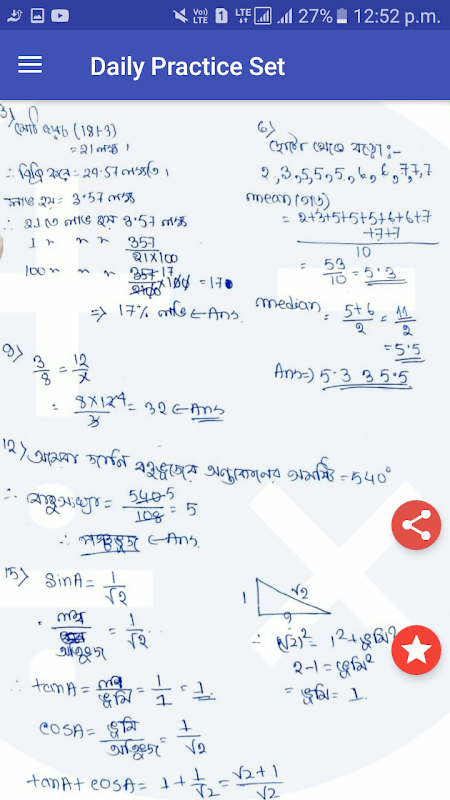 27% 12:52 p.m.
Daily Practice Set
3) মোট খরচ (18+3)
= 21 লক্ষ।
∴ বিক্রি করে = 24.57 লক্ষতে।
লাভ হয় = 3.57 লক্ষ
∴ 21 তে লাভ হয় 3.57 লক্ষ
1 " " " 357 / 21×100
100 " " " 357 17 / 2100 ×100 = 17
=> 17% লাভ ← Ans.
6)
ছোটো থেকে বড়ো :-
2, 3, 5, 5, 5, 6, 6, 7, 7, 7
mean (গড়)
= 2+3+5+5+5+6+6+7+7+7 / 10
= 53/10 = 5.3
median = 5+6/2 = 11/2
= 5.5
Ans => 5.3 3 5.5
9) 3/8 = 12/x
= 8×12 4/3 = 32 ← Ans
12) আমরা জানি বহুভুজের অন্তঃকোণের সমষ্টি = 540°
∴ বাহুসংখ্যা = 540 5/108 = 5
∴ পঞ্চভুজ ← Ans.
15) SinA = 1/√2
লম্ব/অতিভুজ = 1/√2
1 √2
∴ (√2)² = 1² + ভূমি²
2-1 = ভূমি²
= ভূমি = 1.
∴ tanA = লম্ব/ভূমি = 1/1 = 1.
cosA = ভূমি/অতিভুজ = 1/√2
tanA + cosA = 1 + 1/√2 = √2+1/√2